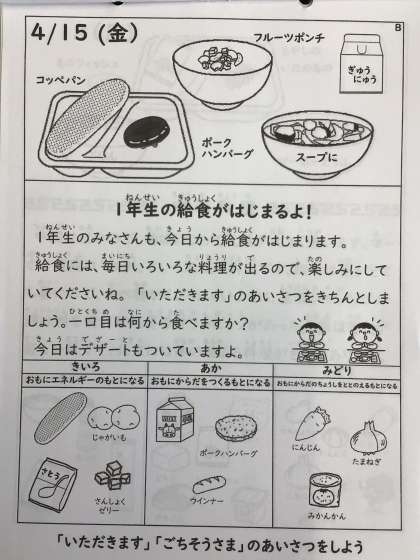 4/15 (金)
B
フルーツポンチ
ぎゅうにゅう
コッペパン
ポークハンバーグ
スープに
1年生の給食がはじまるよ!
1年生のみなさんも、今日から給食がはじまります。
給食には、毎日いろいろな料理が出るので、楽しみにして
いてくださいね。「いただきます」のあいさつをきちんとしま
しょう。一口目は何から食べますか?
今日はデザートもついていますよ。
きいろ
おもにエネルギーのもとになる
あか
おもにからだをつくるもとになる
みどり
おもにからだのちょうしをととのえるもとになる
じゃがいも
さとう
さんしょく
ゼリー
ポークハンバーグ
ウインナー
にんじん
たまねぎ
みかんかん
「いただきます」「ごちそうさま」のあいさつをしよう